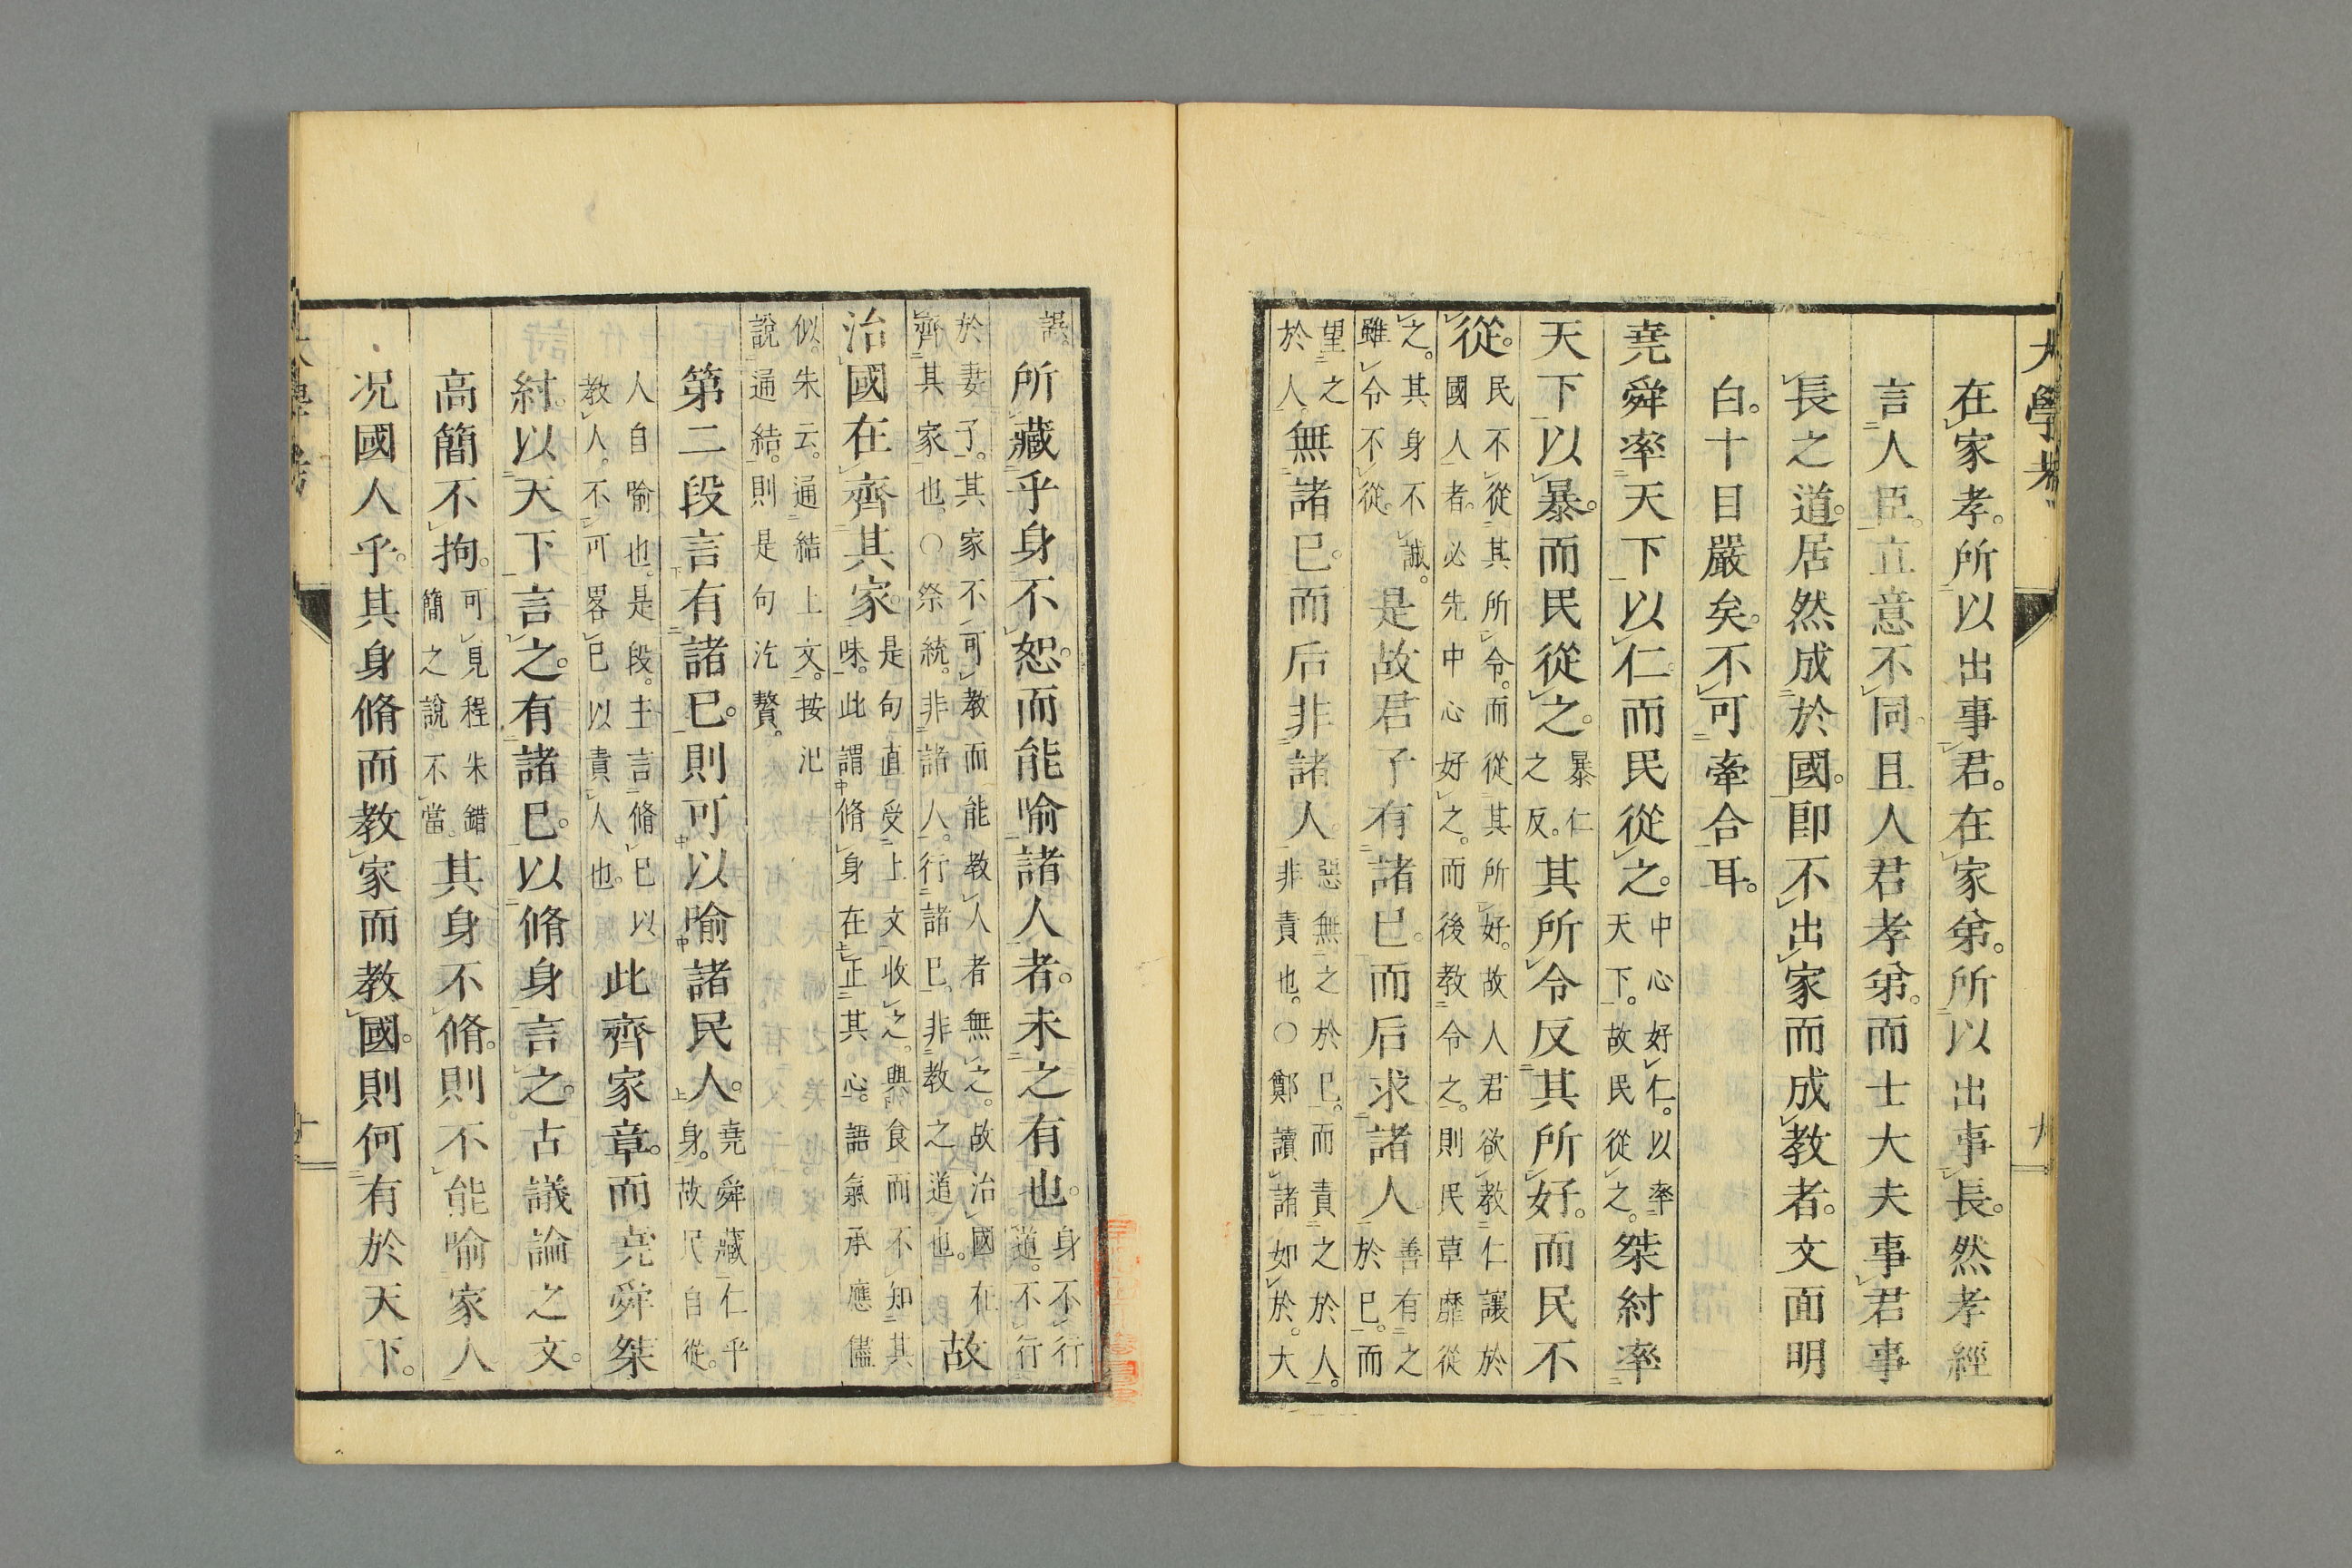 大學考
九
在家孝。所以出事君。在家弟。所以出事長。然孝經
言人臣。立意不同。且人君孝弟。而士大夫事君事
長之道。居然成於國。即不出家而成教者。文面明
白。十目嚴矣。不可牽合耳。
堯舜率天下以仁。而民從之。中心好仁。以率天下。故民從之。桀紂率
天下以暴。而民從之。暴仁之反。其所令反其所好。而民不
從。民不從其所令。而從其所好。故人君欲教仁讓於國人者。必先中心好之。而後教令之。則民草靡從
之。其身不誠。雖令不從。是故君子有諸己。而后求諸人。善有之於己。而
望之於人無諸己。而后非諸人。惡無之於己。而責之於人。非責也。○鄭讀諸如於。大
誤。所藏乎身不恕。而能喻諸人者。未之有也。身不行道。不行
於妻子。其家不可教而能教人者無之。故治國在齊其家也。○祭統。非諸人。行諸己。非教之道也。故
治國在齊其家。是句直受上文收之。與食而不知其味。此謂脩身在正其心。語氣承應儘
似。朱云。通結上文。按汜說通結。則是句汔贅。
第二段言有諸己。則可以喻諸民人。堯舜藏仁乎身。故民自從。
人自喻也。是段。主言脩己以教人。不可畧己以責人也。此齊家章。而堯舜桀
紂。以天下言之。有諸己。以脩身言之。古議論之文。
高簡不拘。可見程朱錯簡之說不當。其身不脩。則不能喻家人
況國人乎。其身脩而教家而教國。則何有於天下。
大學考
十